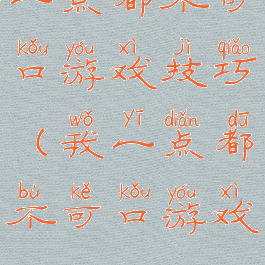 一点都不可
kǒu yóu xì jì qiǎo
口游戏技巧
wǒ yī diǎn dū
（我一点都
bù kě kǒu yóu xì
不可口游戏